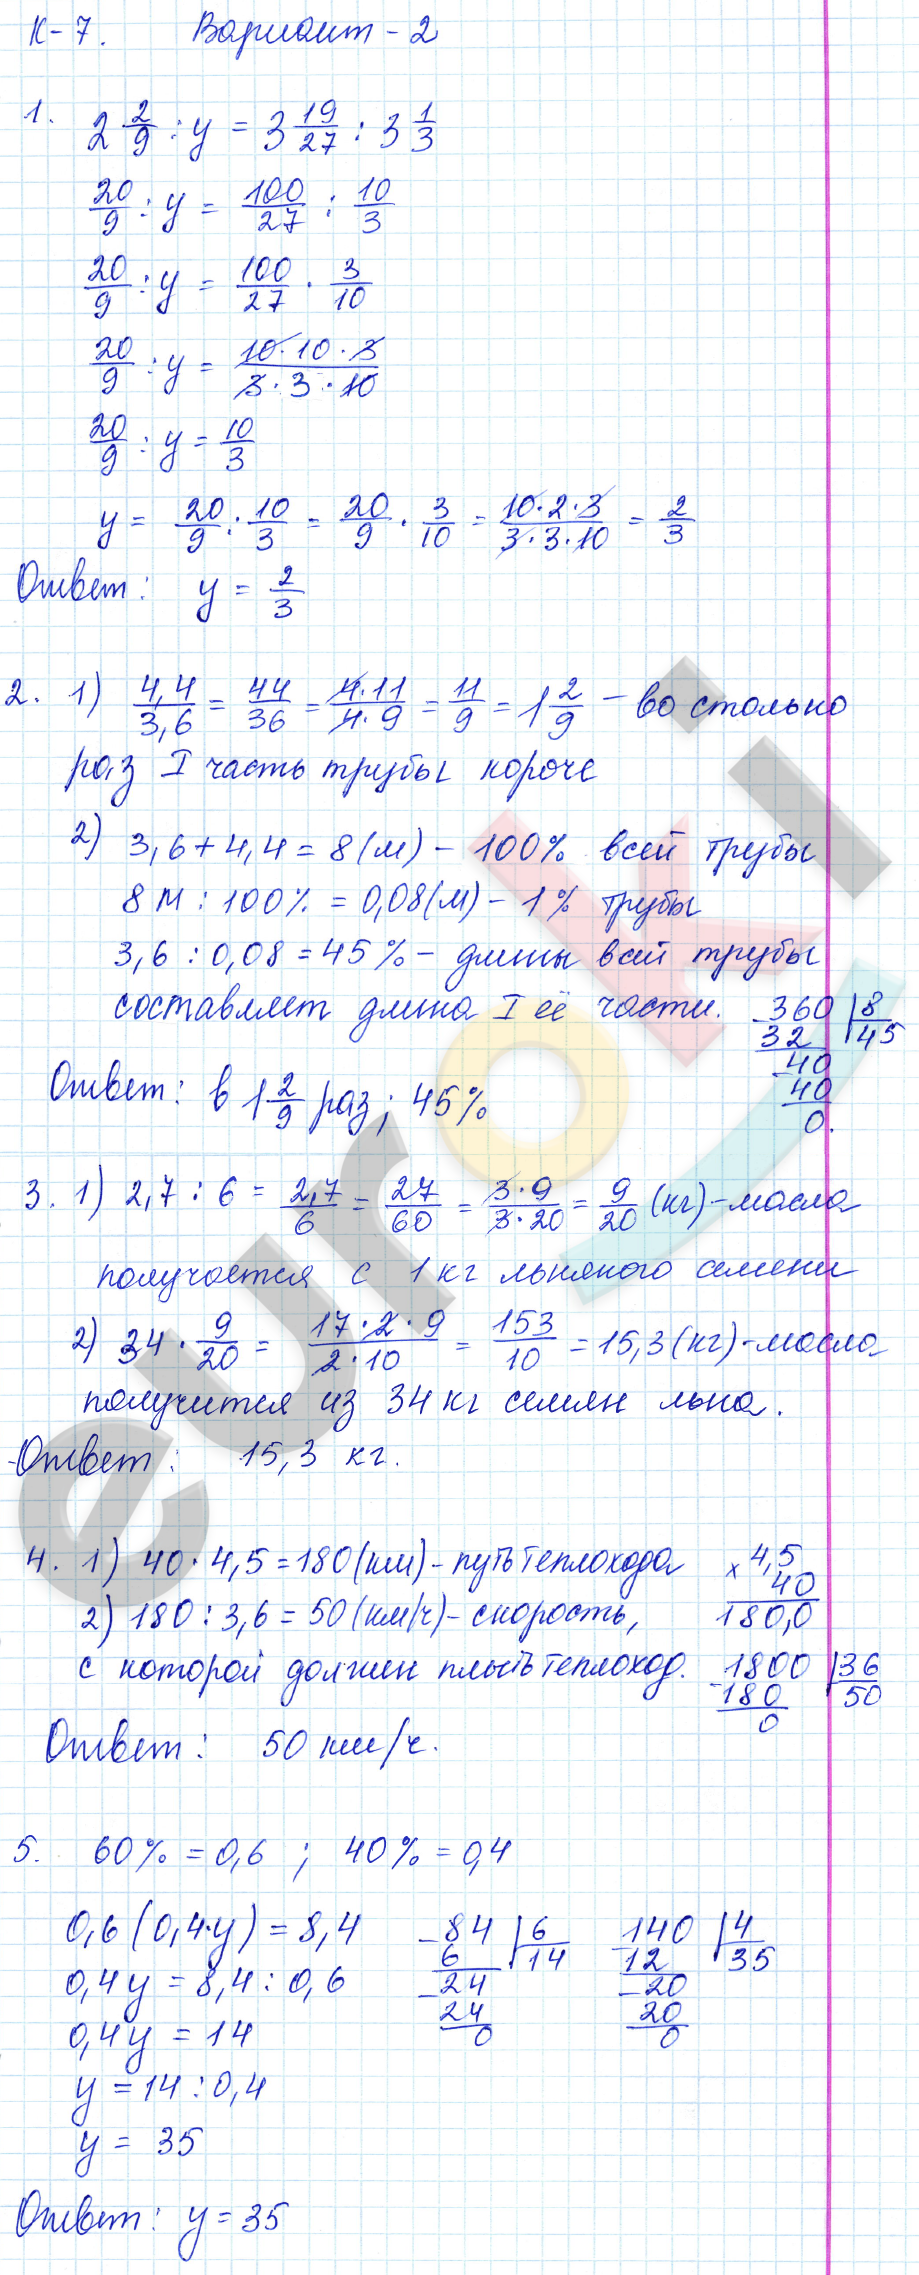 К-7. Вариант-2
1. 2 2/9 : y = 3 19/27 : 3 1/3
20/9 : y = 100/27 : 10/3
20/9 : y = 100/27 · 3/10
20/9 : y = 10·10·3/3·3·10
20/9 : y = 10/3
y = 20/9 : 10/3 = 20/9 · 3/10 = 10·2·3/3·3·10 = 2/3
Ответ: y = 2/3
2. 1) 4,4/3,6 = 44/36 = 4·11/4·9 = 11/9 = 1 2/9 – во столько
раз I часть трубы короче
2) 3,6+4,4=8(м) – 100% всей трубы
8 м : 100% = 0,08(м) – 1% трубы
3,6 : 0,08 = 45% – длины всей трубы
составляет длина I её части.
360 8
32 45
40
40
0.
Ответ: в 1 2/9 раз; 45%
3. 1) 2,7 : 6 = 2,7/6 = 27/60 = 3·9/3·20 = 9/20 (кг) – масла
получается с 1 кг льняного семени
2) 34 · 9/20 = 17·2·9/2·10 = 153/10 = 15,3(кг) - масла
получится из 34 кг семян льна.
Ответ: 15,3 кг.
4. 1) 40·4,5=180(км) – путь теплохода
× 4,5
40
180,0
2) 180 : 3,6 = 50(км/ч) – скорость,
с которой должен плыть теплоход.
-1800 36
180 50
0
Ответ: 50 км/ч.
5. 60% = 0,6 ; 40% = 0,4
0,6(0,4·y) = 8,4
0,4y = 8,4 : 0,6
0,4y = 14
y = 14 : 0,4
y = 35
-84 6
6 14
-24
24
0
-140 4
12 35
-20
20
0
Ответ: y = 35
euroki